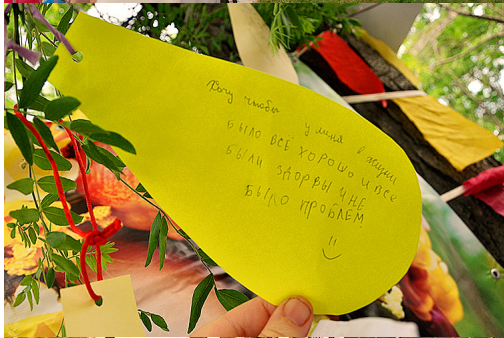 Хочу чтобы у меня в жизни
БЫЛО ВСЁ ХОРОШО И ВСЕ
БЫЛИ ЗДОРВЫ И НЕ
БЫЛО ПРОБЛЕМ